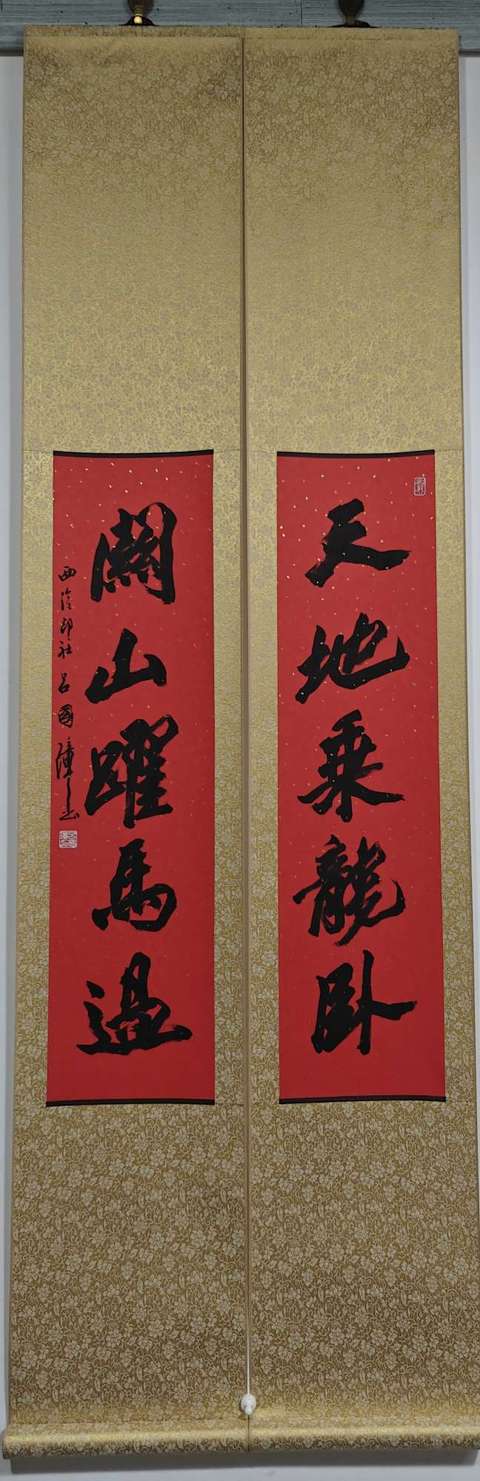 天地乘龍卧
關山躍馬過
西泠印社 呂國璋